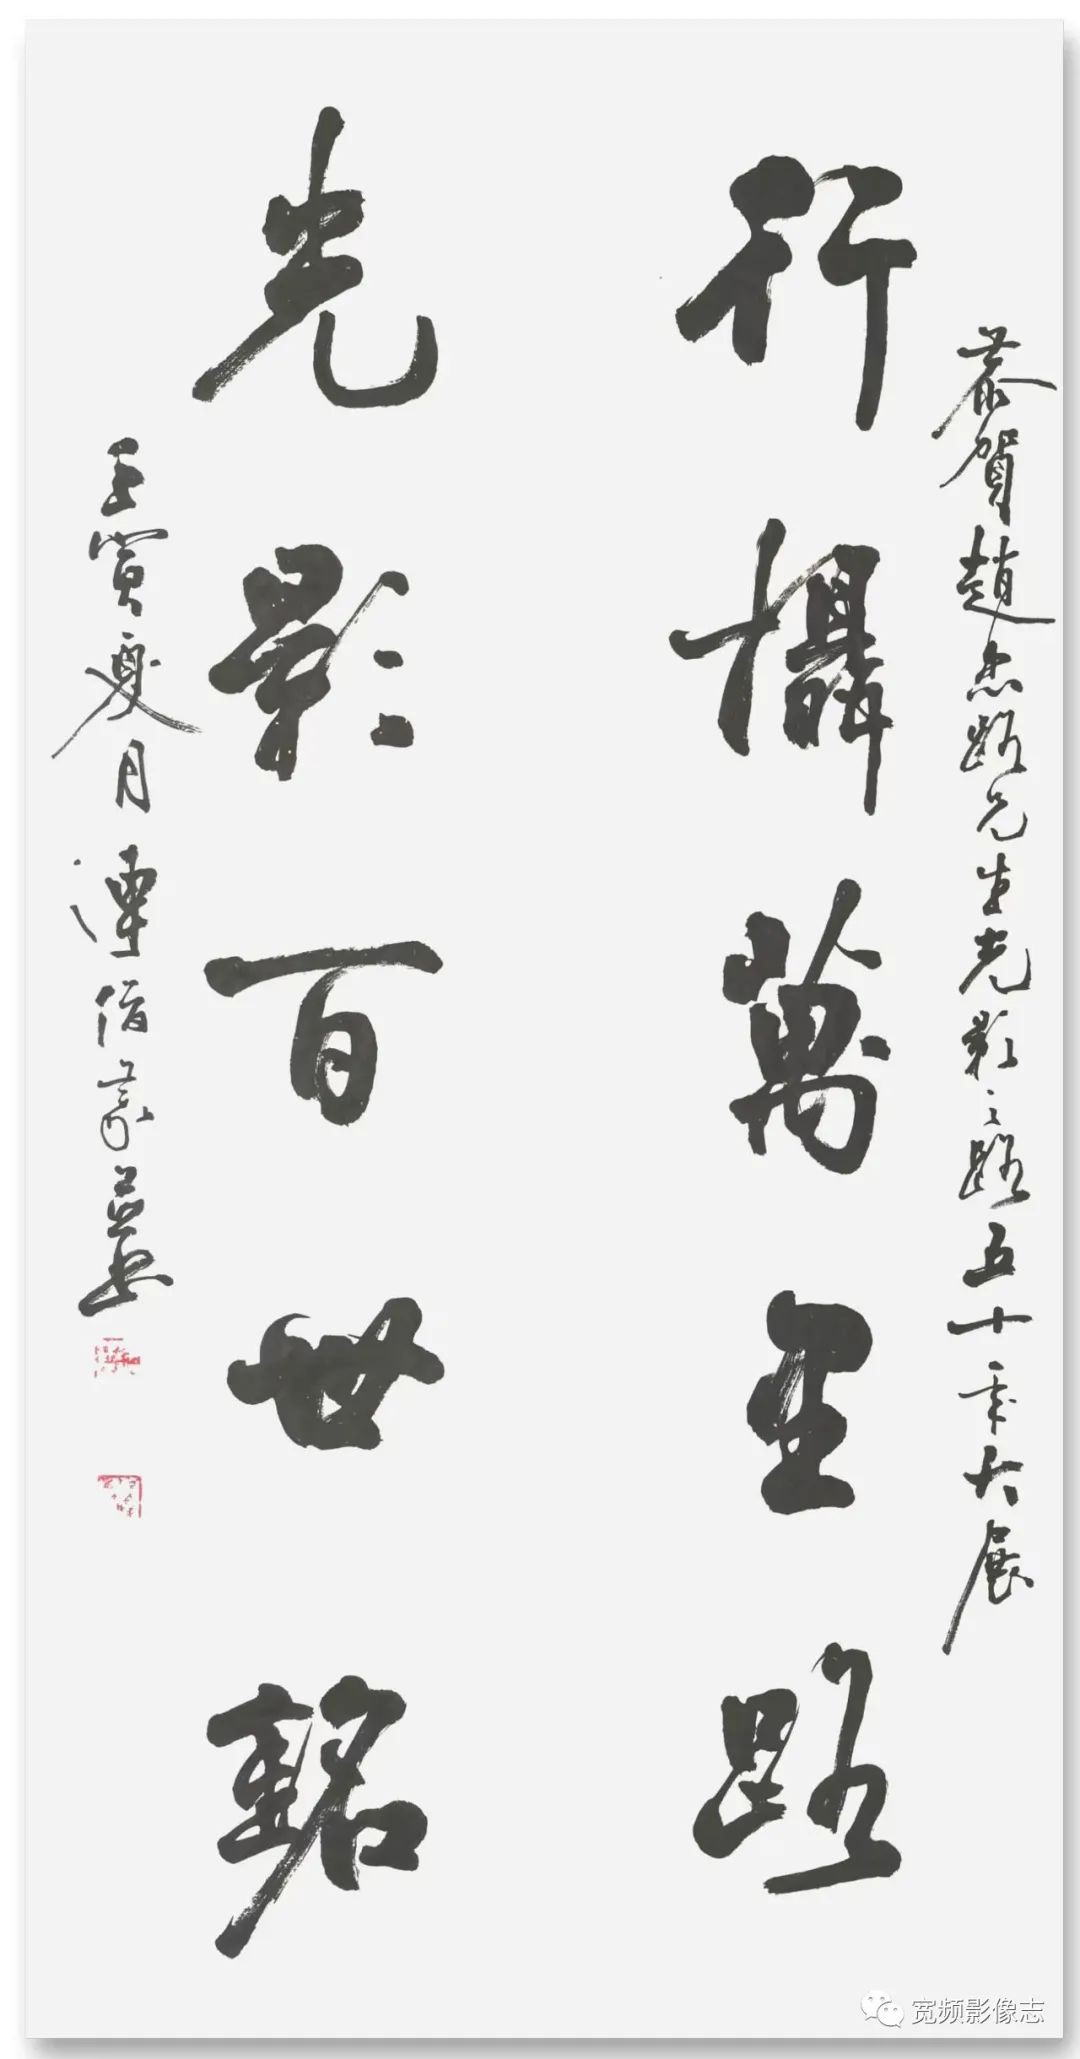 恭賀趙忠路先生光影之路五十年大展
行攝萬里路
光影百世銘
壬寅夏月
宽频影像志